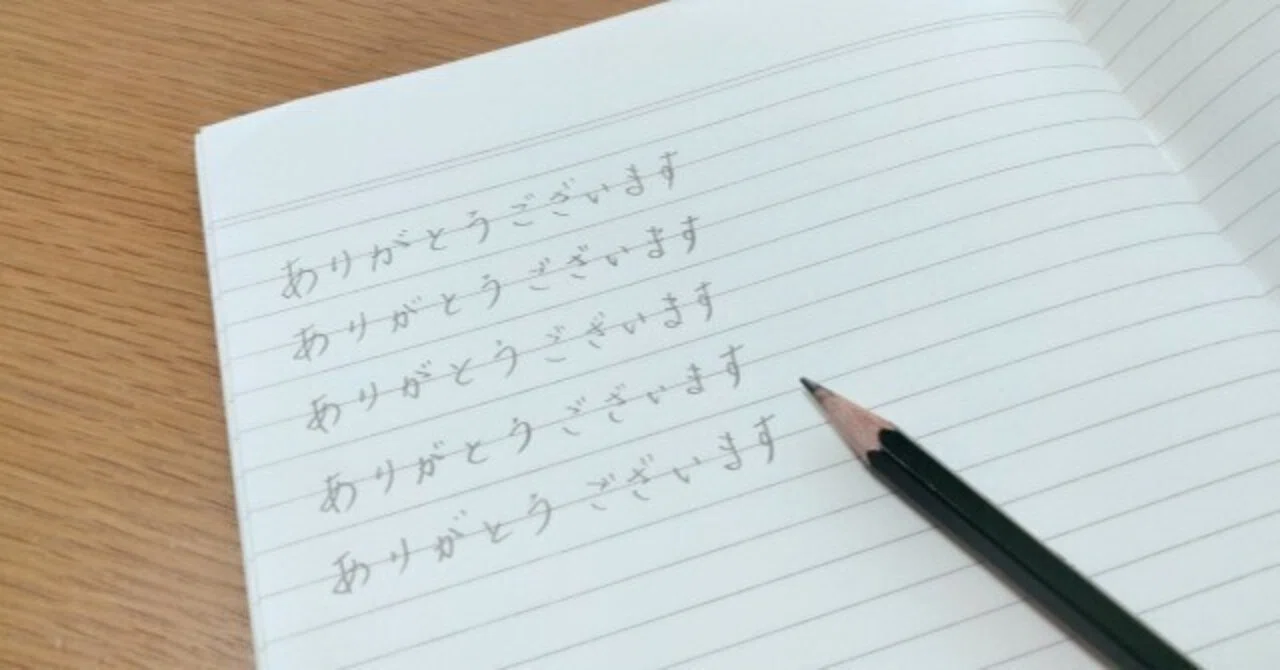 ありがとうございます
ありがとうございます
ありがとうございます
ありがとうございます
ありがとうございます